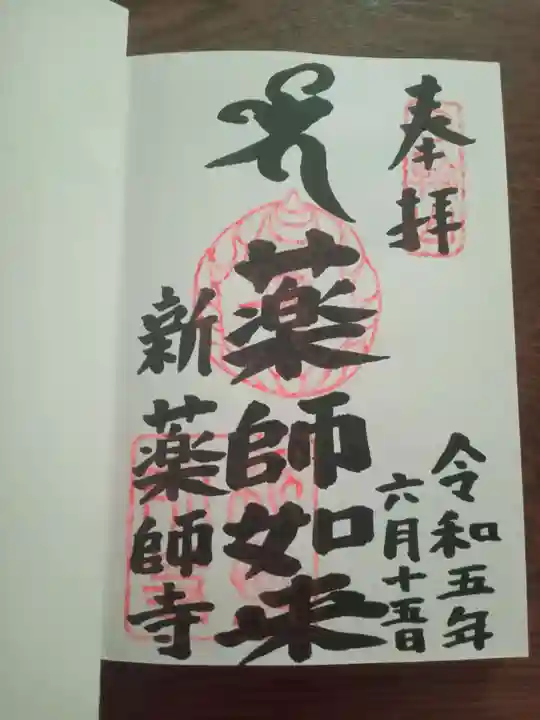 奉拝
令和五年
六月十五日
薬師如来
新薬師寺